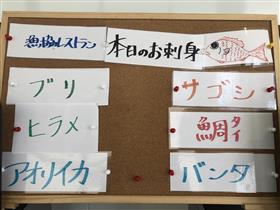 漁協レストラン
本日のお刺身
ブリ
サゴシ
ヒラメ
鯛 タイ
アオリイカ
バンタ